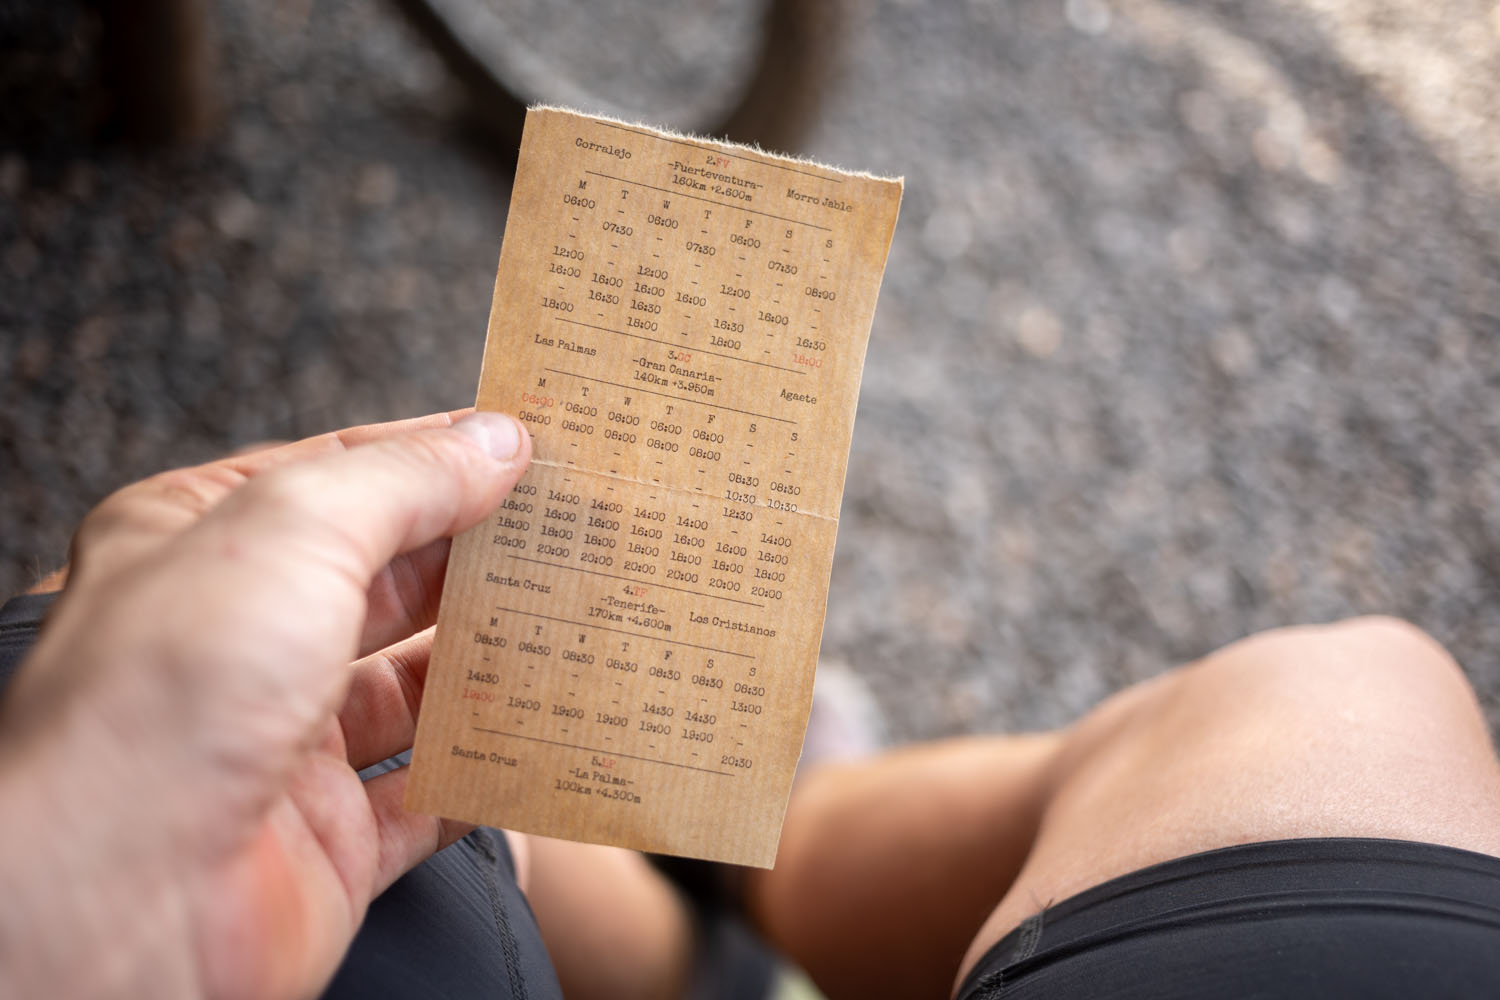 2.FV
Corralejo -Fuerteventura- Morro Jable
160km +2.600m
M T W T F S S
06:00 - 06:00 - 06:00 - -
- 07:30 - 07:30 - 07:30 -
- - - - - - 08:00
12:00 - 12:00 - 12:00 - -
16:00 16:00 16:00 16:00 - 16:00 -
- 16:30 16:30 - 16:30 - 16:30
18:00 - 18:00 - 18:00 - 18:00
3.GC
Las Palmas -Gran Canaria- Agaete
140km +3.950m
M T W T F S S
06:00 06:00 06:00 06:00 06:00 - -
08:00 08:00 08:00 08:00 08:00 - -
- - - - - 08:30 08:30
- - - - 10:30 10:30
- - - - 12:30 -
4:00 14:00 14:00 14:00 14:00 - 14:00
16:00 16:00 16:00 16:00 16:00 16:00 16:00
18:00 18:00 18:00 18:00 18:00 18:00 18:00
20:00 20:00 20:00 20:00 20:00 20:00 20:00
4.TF
Santa Cruz -Tenerife- Los Cristianos
170km +4.600m
M T W T F S S
08:30 08:30 08:30 08:30 08:30 08:30 08:30
- - - - - - 13:00
14:30 - - - 14:30 14:30 -
19:00 19:00 19:00 19:00 19:00 19:00 -
- - - - - - 20:30
5.LP
Santa Cruz -La Palma-
100km +4.300m